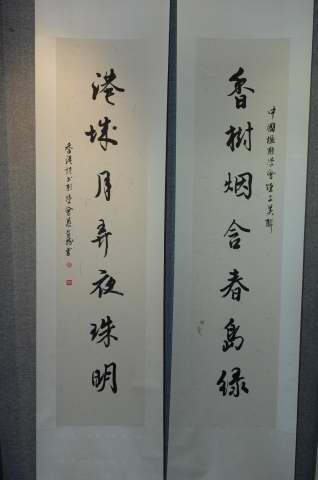 中國楹聯學會
香樹烟含春島綠
港城月弄夜珠明
香港詩書聯學會